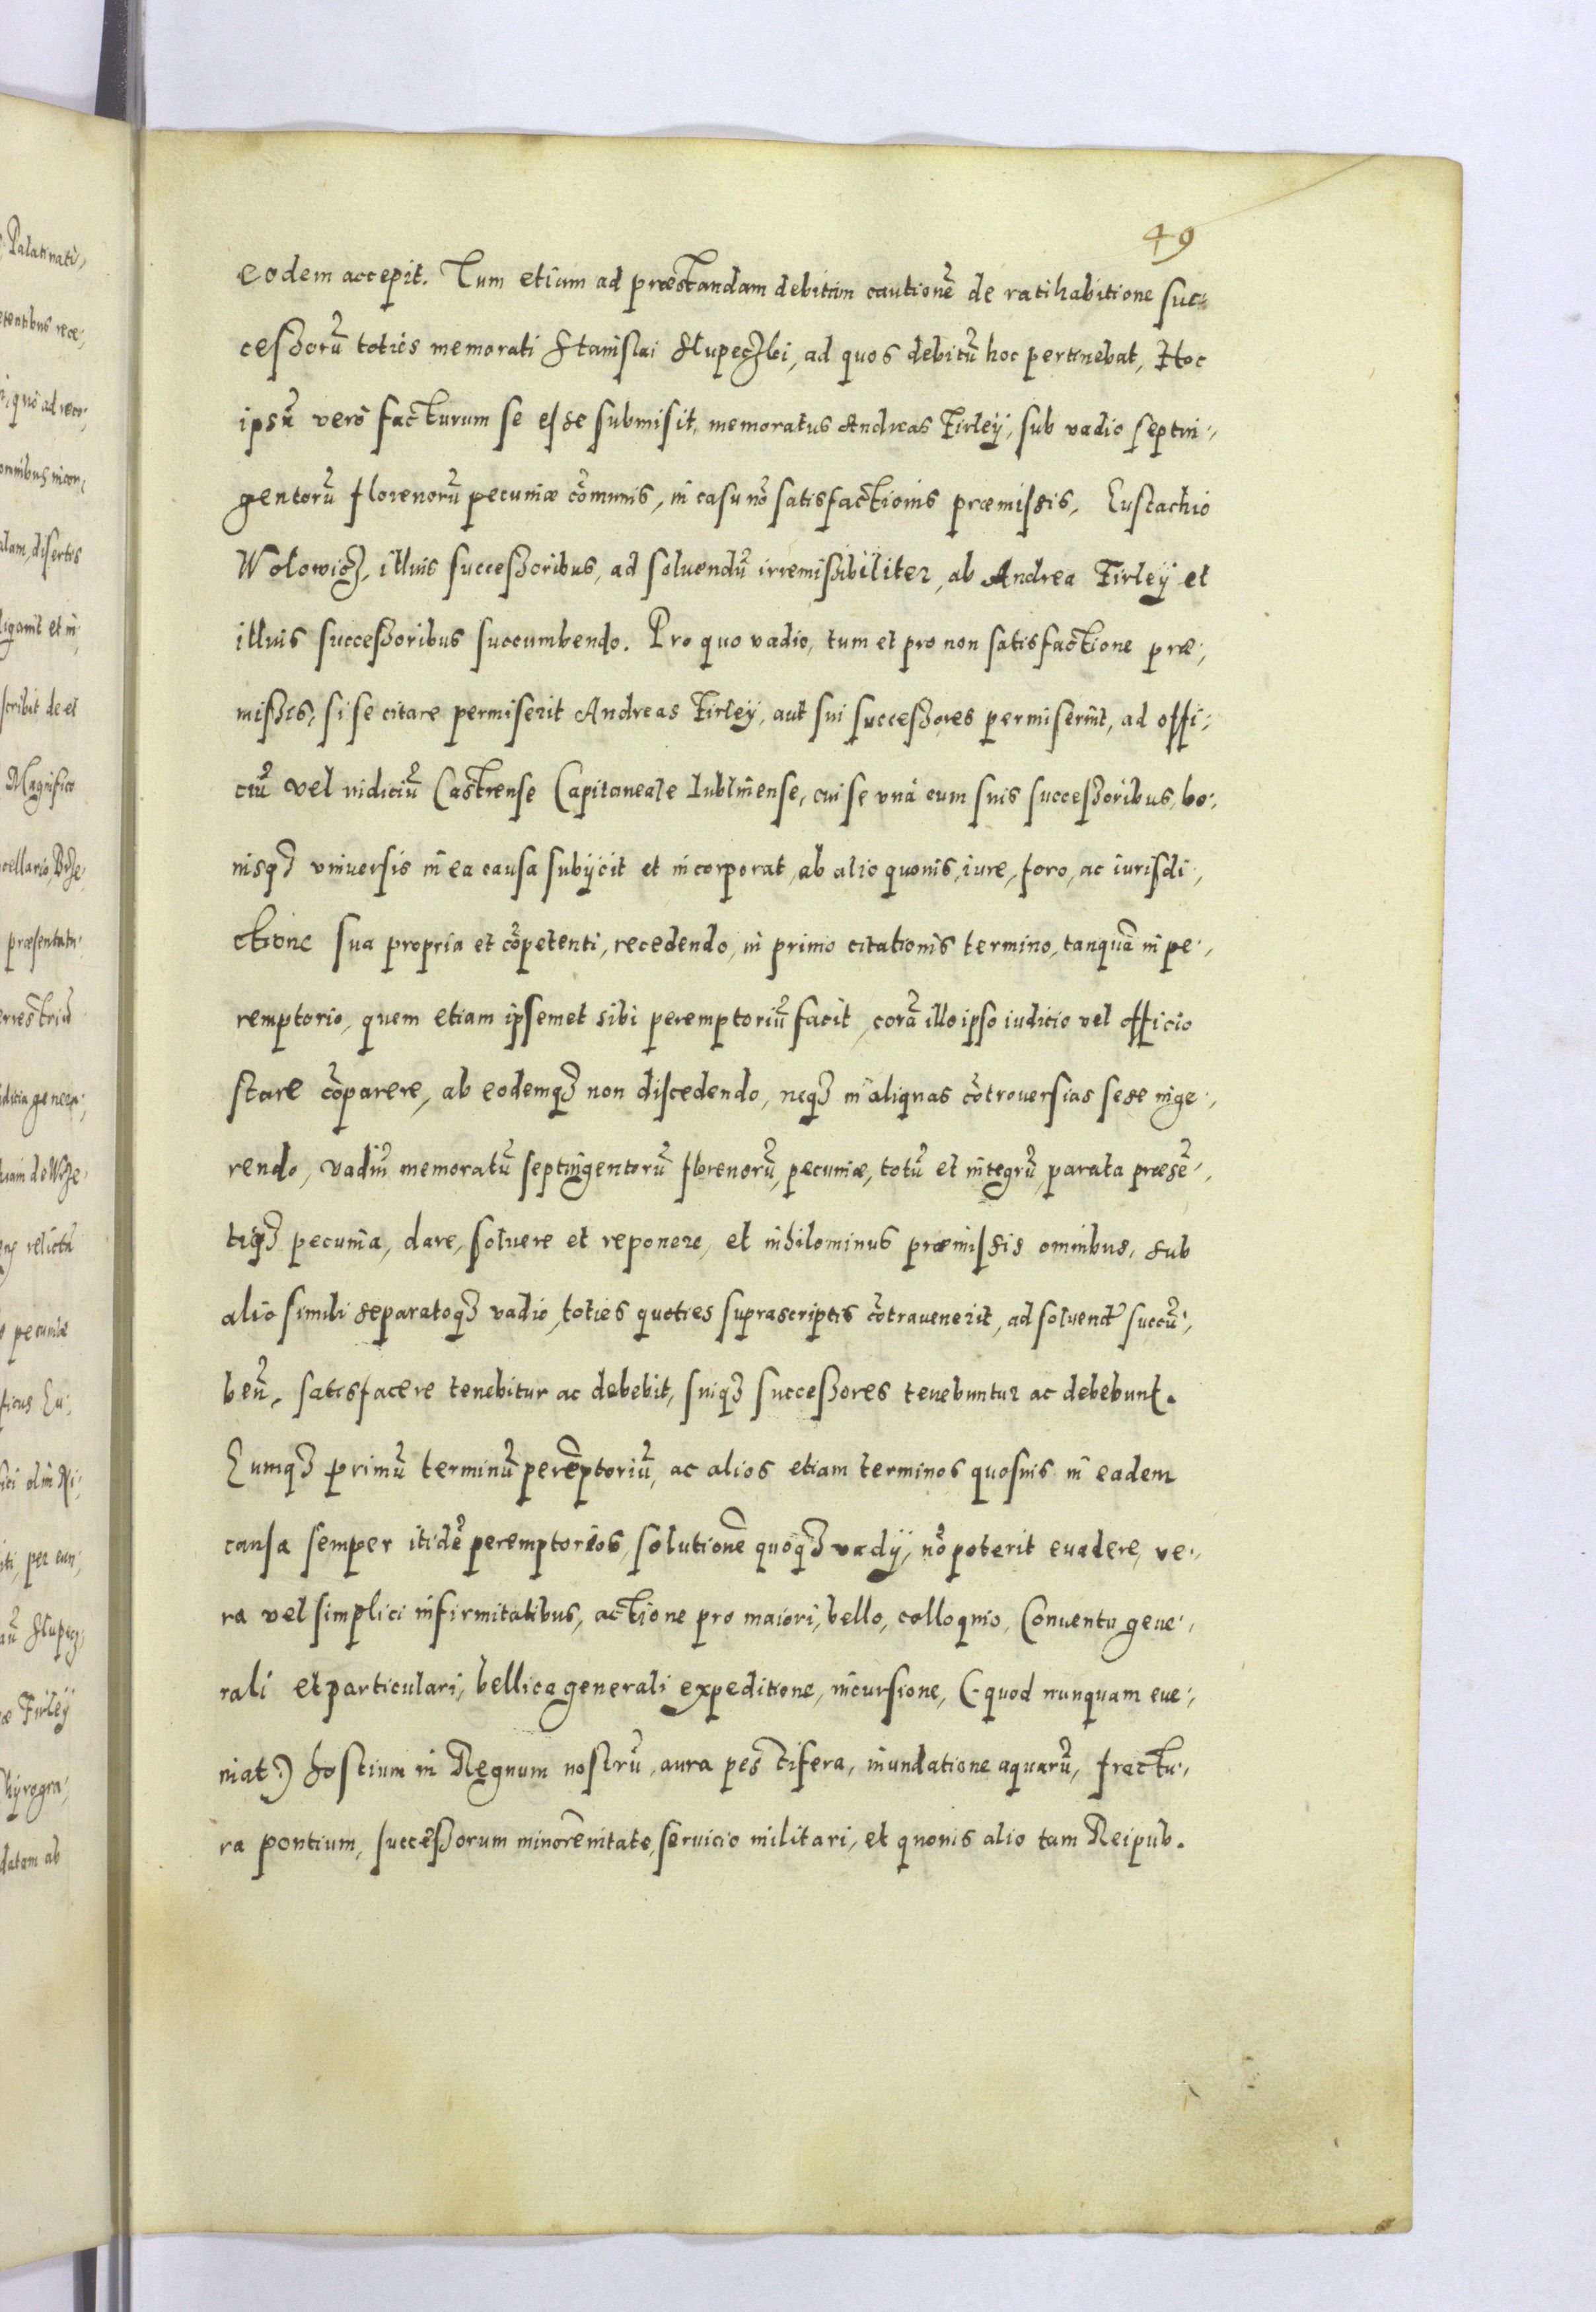 49
eodem accepit. Tum etiam ad præstandam debitam cautionẽ de ratihabitione suc-
cessorũ toties memorati Stanislai Slupeczki, ad quos debitũ hoc pertinebat, Hoc
ipsũ verò facturum se esse submisit, memoratus Andreas Firleÿ, sub vadio septin-
gentorũ florenorũ pecuniæ cõmunis, in casu nõ satisfactionis præmissis, Eustachio
Wolowicz, illius successoribus, ad soluendũ irremissibiliter, ab Andrea Firleÿ et
illius successoribus succumbendo. Pro quo vadio, tum et pro non satisfactione præ-
missis, si se citare permiserit Andreas Firleÿ, aut sui successores permiserint, ad offi-
ciũ vel iudiciũ Castrense Capitaneale lublinense, cui se vnà cum suis successoribus, bo-
nisq3 vniuersis in ea causa subijcit et incorporat, ab alio quouis, iure, foro, ac iurisdi-
ctione sua propria et cõpetenti, recedendo, in primo citationis termino, tanquã in pe-
remptorio, quem etiam ipsemet sibi peremptoriũ facit, corã illo ipso iudicio vel officio
stare cõparere, ab eodemq3 non discedendo, neq3 in aliquas cõtrouersias sese inge-
rendo, vadiũ memoratũ septingentorũ florenorũ, pecuniæ, totũ et integrũ, parata præsẽ-
tiq3 pecunia, dare, soluere et reponere, et nihilominus præmissis omnibus, sub
alio simili separatoq3 vadio, toties quoties suprascriptis cõtrauenerit, ad soluendũ succũ-
beñ, satisfacere tenebitur ac debebit, suiq3 successores tenebuntur ac debebunt.
Eumq3 primũ terminũ perẽptoriũ, ac alios etiam terminos quosuis in eadem
causa semper itidẽ peremptorios, solutionẽ quoq3 vadÿ, nõ poterit euadere, ve-
ra vel simplici infirmitatibus, actione pro maiori, bello, colloquio, Conuentu gene-
rali et particulari, bellica generali expeditione, incursione, (quod nunquam eue-
niat) hostium in Regnum nostrũ, aura pestifera, inundatione aquarũ, fractu-
ra pontium, successorum minorennitate, seruicio militari, et quouis alio tam Reipub.